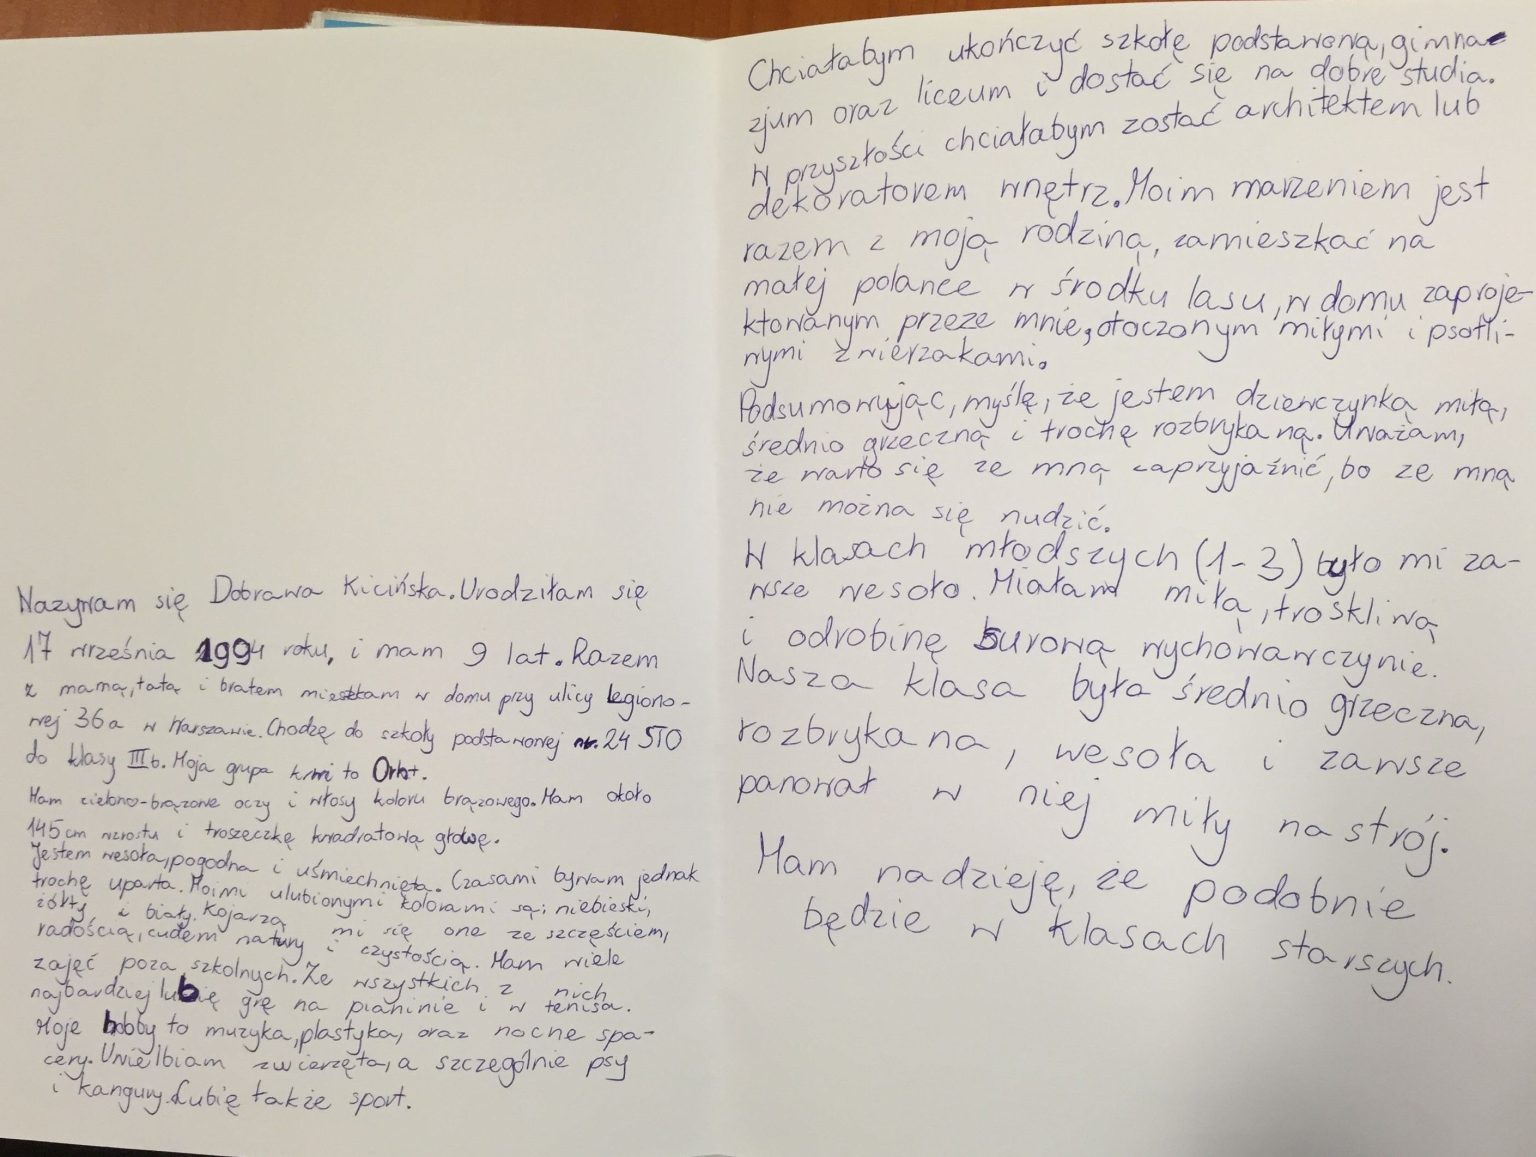 Nazywam się Dobrawa Kicińska. Urodziłam się
17 września 1994 roku, i mam 9 lat. Razem
z mamą, tatą i bratem mieszkam w domu przy ulicy Legiono-
wej 36a w Warszawie. Chodzę do szkoły podstawowej nr. 24 STO
do klasy III b. Moja grupa krwi to Orh+.
Mam zielono-brązowe oczy i włosy koloru brązowego. Mam około
145 cm wzrostu i troszeczkę kwadratową głowę.
Jestem wesoła, pogodna i uśmiechnięta. Czasami bywam jednak
trochę uparta. Moimi ulubionymi kolorami są: niebieski,
żółty i biały. Kojarzą mi się one ze szczęściem,
radością, cudem natury i czystością. Mam wiele
zajęć poza szkolnych. Ze wszystkich z nich
najbardziej lubię grę na pianinie i w tenisa.
Moje hobby to muzyka, plastyka, oraz nocne spa-
cery. Uwielbiam zwierzęta, a szczególnie psy
i kangury. Lubię także sport.
Chciałabym ukończyć szkołę podstawową, gimna-
zjum oraz liceum i dostać się na dobre studia.
W przyszłości chciałabym zostać architektem lub
dekoratorem wnętrz. Moim marzeniem jest
razem z moją rodziną, zamieszkać na
małej polance w środku lasu, w domu zaproje-
ktowanym przeze mnie, otoczonym miłymi i psotli-
wymi zwierzakami.
Podsumowując, myślę, że jestem dziewczynką miłą,
średnio grzeczną i trochę rozbrykaną. Uważam,
że warto się ze mną zaprzyjaźnić, bo ze mną
nie można się nudzić.
W klasach młodszych (1-3) było mi za-
wsze wesoło. Miałam miłą, troskliwą
i odrobinę surową wychowawczynie.
Nasza klasa była średnio grzeczna,
rozbrykana, wesoła i zawsze
panował w niej miły nastrój.
Mam nadzieję, że podobnie
będzie w klasach starszych.